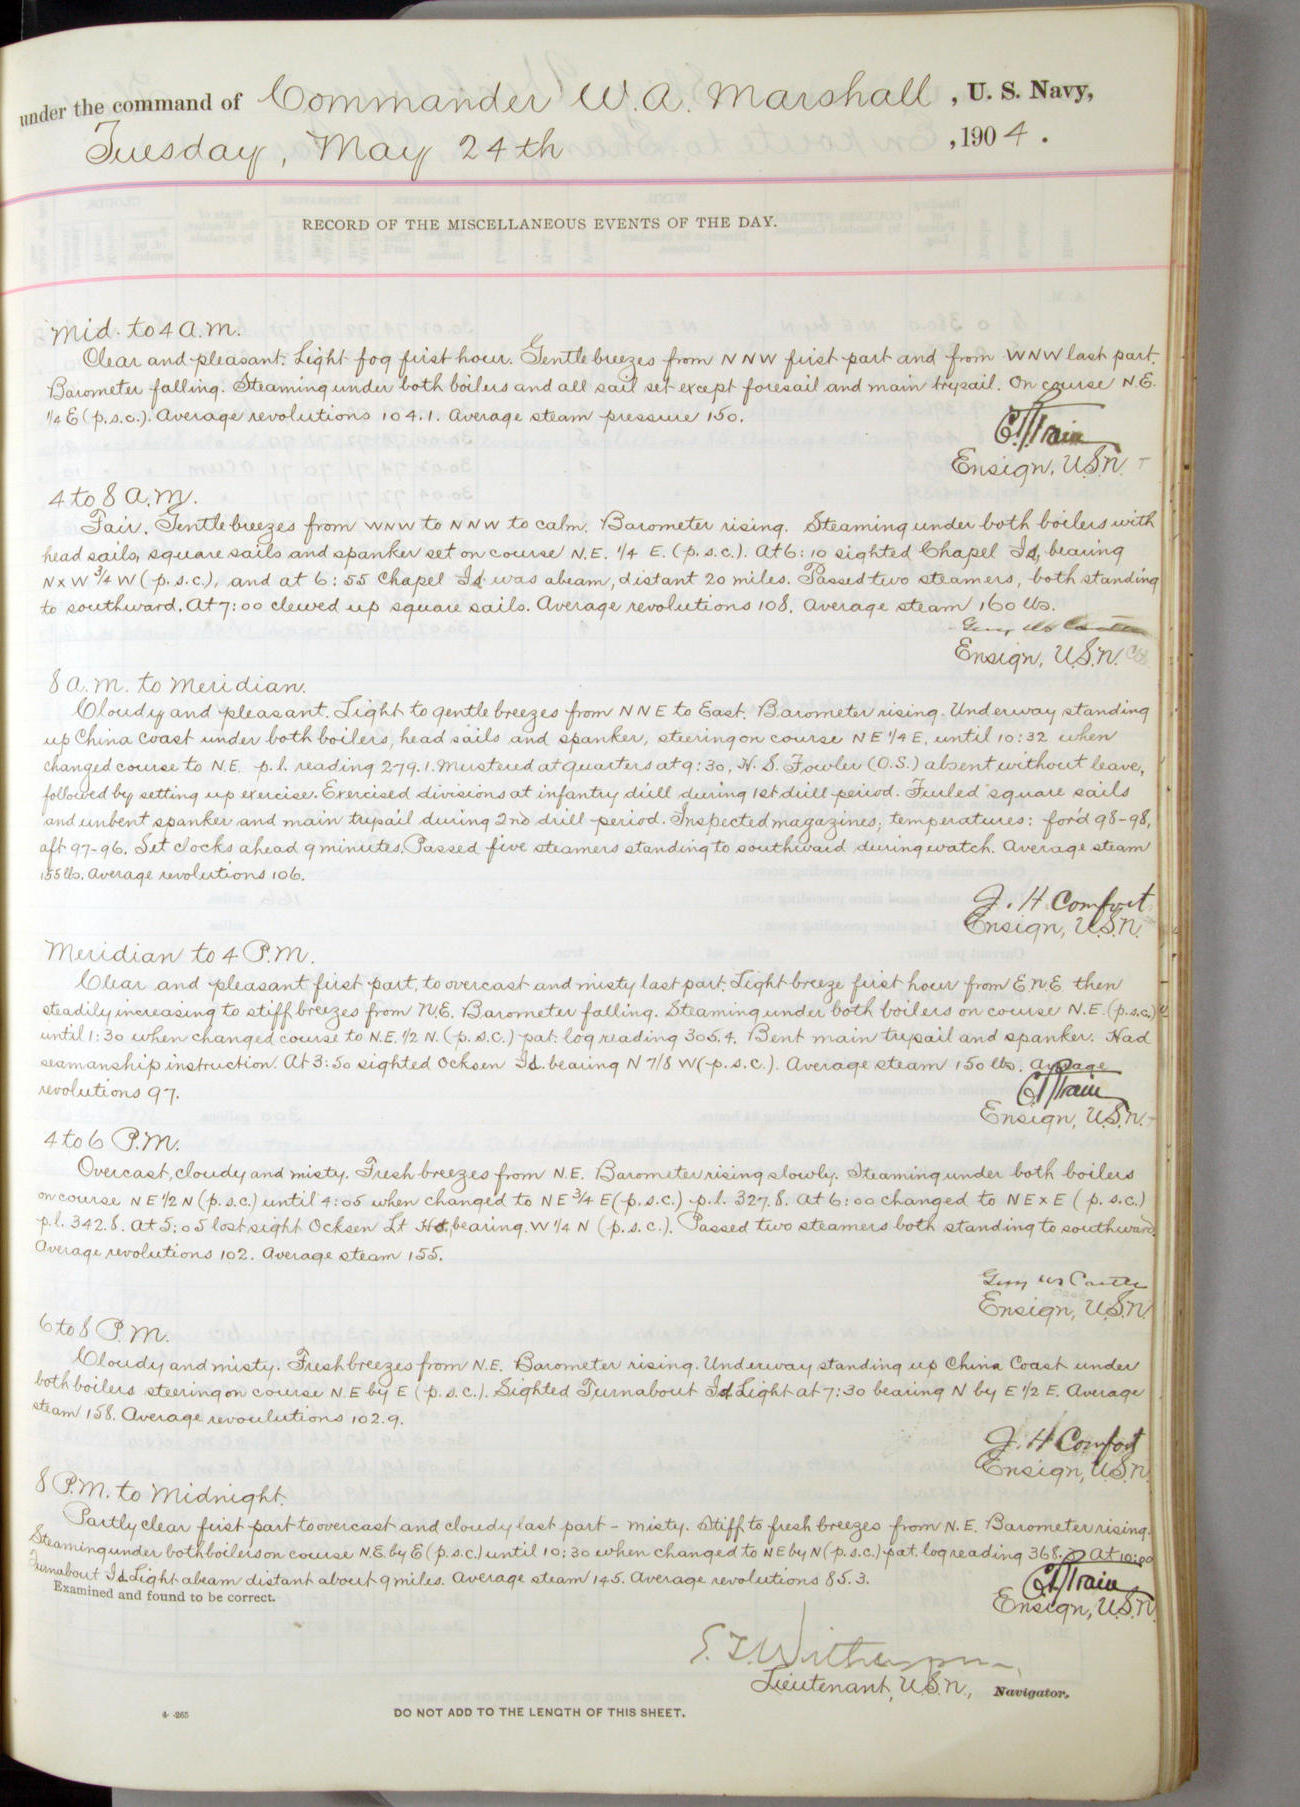 under the command of Commander W.A. Marshall, U. S. Navy,
Tuesday, May 24th, 1904.
RECORD OF THE MISCELLANEOUS EVENTS OF THE DAY.
Mid. to 4 a.m.
Clear and pleasant. Light fog first hour. Gentle breezes from NNW first part and from WNW last part.
Barometer falling. Steaming under both boilers and all sail set except foresail and main trysail. On course N.E.
1/4 E (p.s.c.). Average revolutions 104.1. Average steam pressure 150.
C.R. Train
Ensign, U.S.N.
4 to 8 a.m.
Fair. Gentle breezes from WNW to NNW to calm. Barometer rising. Steaming under both boilers with
head sails, square sails and spanker set on course N.E. 1/4 E. (p.s.c.). At 6:10 sighted Chapel Id, bearing
NxW 3/4 W (p.s.c.), and at 6:55 Chapel Id was abeam, distant 20 miles. Passed two steamers, both standing
to southward. At 7:00 clewed up square sails. Average revolutions 108. Average steam 160 lbs.
Ensign, U.S.N.
8 a.m. to Meridian.
Cloudy and pleasant. Light to gentle breezes from NNE to East. Barometer rising. Underway standing
up China Coast under both boilers, head sails and spanker, steering on course NE 1/4 E, until 10:32 when
changed course to N.E. p.l. reading 279.1. Mustered at quarters at 9:30, H. S. Fowler (O.S.) absent without leave,
followed by setting up exercise. Exercised divisions at infantry drill during 1st drill period. Furled square sails
and unbent spanker and main trysail during 2nd drill period. Inspected magazines; temperatures: for'd 98-98,
aft 97-96. Set clocks ahead 9 minutes. Passed five steamers standing to southward during watch. Average steam
155 lbs. Average revolutions 106.
J. H. Comfort
Ensign, U.S.N.
Meridian to 4 P.M.
Clear and pleasant first part, to overcast and misty last part. Light breeze first hour from E.N.E. then
steadily increasing to stiff breezes from N.E. Barometer falling. Steaming under both boilers on course N.E. (p.s.c.)
until 1:30 when changed course to N.E. 1/2 N. (p.s.c.) pat. log reading 305.4. Bent main trysail and spanker. Had
seamanship instruction. At 3:50 sighted Ocksen Id. bearing N 7/8 W (p.s.c.). Average steam 150 lbs. Average
revolutions 97.
C.R. Train
Ensign, U.S.N.
4 to 6 P.M.
Overcast, cloudy and misty. Fresh breezes from N.E. Barometer rising slowly. Steaming under both boilers
on course NE 1/2 N (p.s.c.) until 4:05 when changed to NE 3/4 E (p.s.c.) p.l. 327.8. At 6:00 changed to NExE (p.s.c.)
p.l. 342.8. At 5:05 lost sight Ocksen Lt bearing W 1/4 N (p.s.c.). Passed two steamers both standing to southward.
Average revolutions 102. Average steam 155.
Ensign, U.S.N.
6 to 8 P.M.
Cloudy and misty. Fresh breezes from N.E. Barometer rising. Underway standing up China Coast under
both boilers steering on course N.E by E (p.s.c.). Sighted Turnabout Id Light at 7:30 bearing N by E 1/2 E. Average
steam 158. Average revoulutions 102.9.
J. H. Comfort
Ensign, U.S.N.
8 P.M. to Midnight.
Partly clear first part to overcast and cloudy last part - misty. Stiff to fresh breezes from N.E. Barometer rising.
Steaming under both boilers on course N.E. by E (p.s.c.) until 10:30 when changed to NE by N (p.s.c.) pat. log reading 368. At 10:00
Turnabout Id Light abeam distant about 9 miles. Average steam 145. Average revolutions 85.3.
C.R. Train
Ensign, U.S.N.
Examined and found to be correct.
Lieutenant, U.S.N., Navigator.
DO NOT ADD TO THE LENGTH OF THIS SHEET.